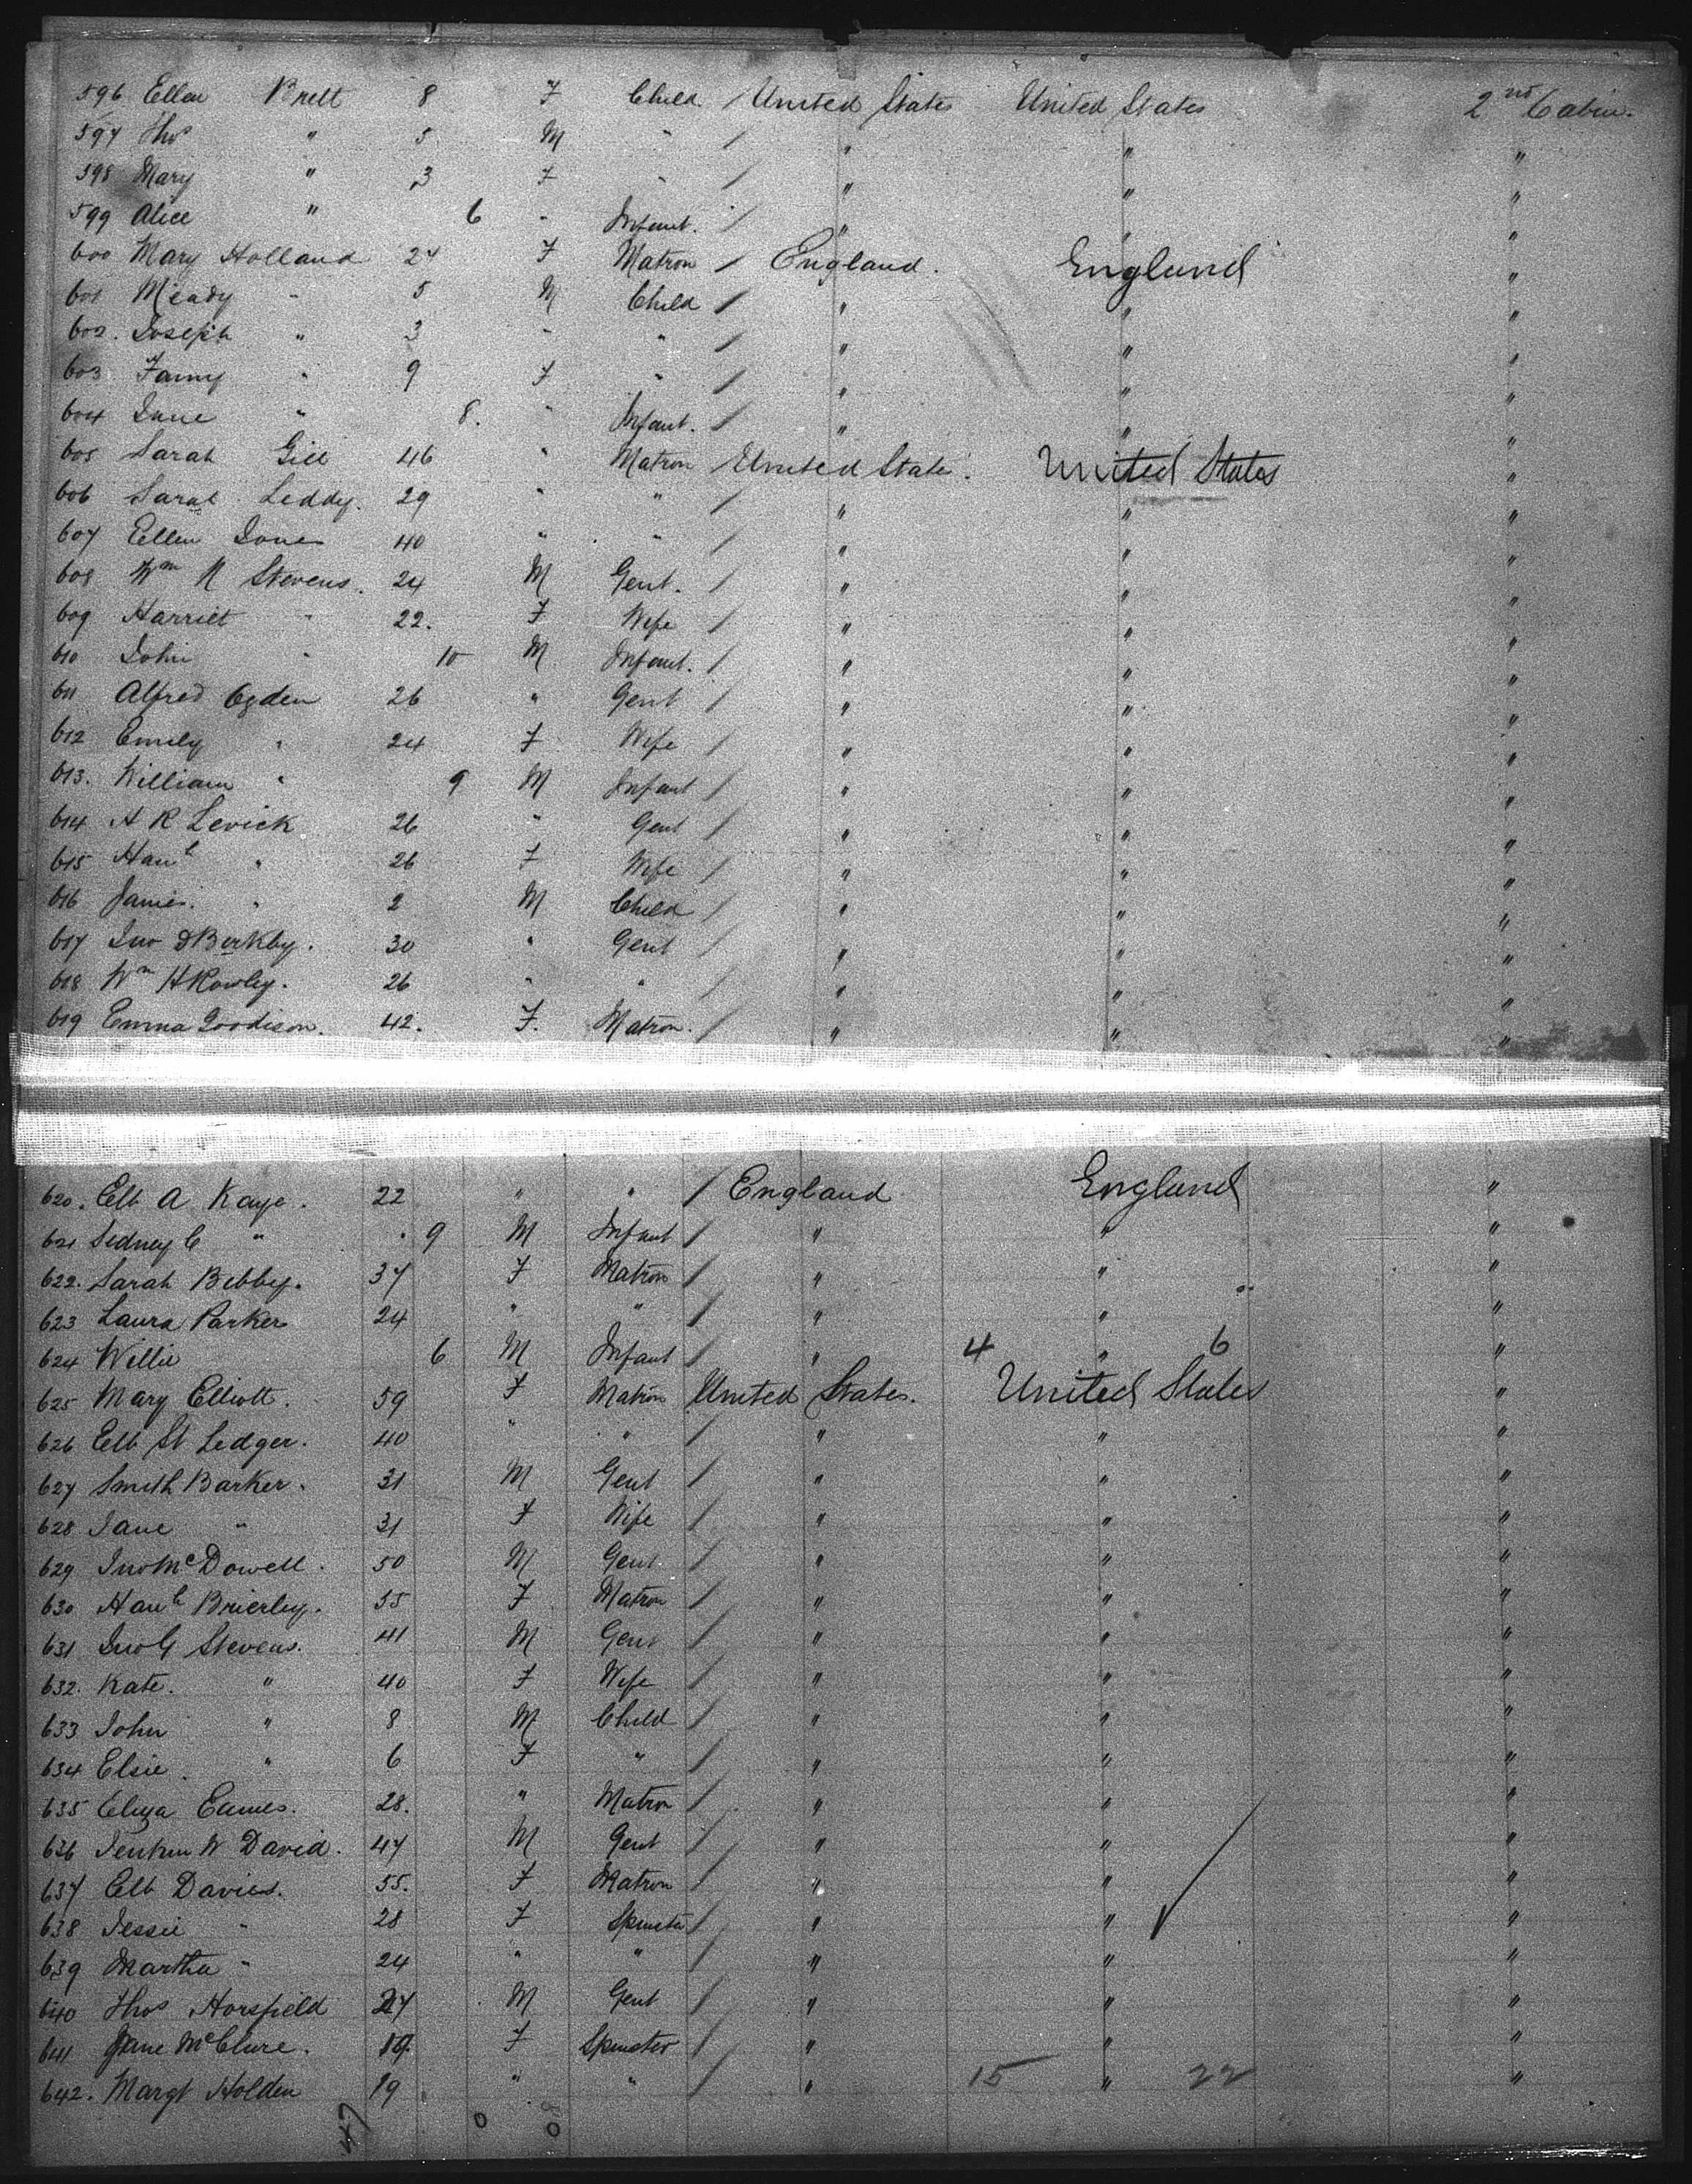 596 Ellen Brett 8 F Child / United States United States 2nd Cabin.
597 Thos " 5 M " / " " "
598 Mary " 3 F " / " " "
599 Alice " 6 " Infant. / " " "
600 Mary Holland 24 F Matron / England. England "
601 " 5 M Child / " " "
602. Joseph " 3 " " / " " "
603 Fanny " 9 F " / " " "
604 Jane " 8. " Infant. / " " "
605 Sarah Gill 46 " Matron United State. United States "
606 Sarah Leddy. 29 " " / " " "
607 Ellen Jones 40 " " / " " "
608 Wm N Stevens. 24 M Gent. / " " "
609 Harriet " 22. F Wife / " " "
610 John " 10 M Infant. / " " "
611 Alfred Ogden 26 " Gent / " " "
612 Emily " 24 F Wife / " " "
613. William " 9 M Infant / " " "
614 A R Levick 26 " Gent / " " "
615 Hanh " 26 F Wife / " " "
616 James. " 2 M Child / " " "
617 Jno D Berkby. 30 " Gent / " " "
618 Wm H Rowley. 26 " " / " " "
619 Emma Goodison. 42. F. Matron. / " " "
620. Elb A Kaye. 22 " " / England England "
621 Sidney C " " 9 M Infant / " " "
622. Sarah Bibby. 37 F Matron / " " "
623 Laura Parker 24 " " / " " "
624 Willie 6 M Infant / " 4 " 6 "
625 Mary Elliott. 59 F Matron United States. United States "
626 Elb St Ledger. 40 " " / " " "
627 Smith Barker. 31 M Gent / " " "
628 Jane " 31 F Wife / " " "
629 Jno McDowell. 50 M Gent. / " " "
630 Hanh Brierley. 55 F Matron / " " "
631 Jno G Stevens. 41 M Gent / " " "
632. Kate. " 40 F Wife / " " "
633 John " 8 M Child / " " "
634 Elsie. " 6 F " / " " "
635 Eliza Eames. 28. " Matron / " " "
636 Jenkin W David. 47 M Gent / " " "
637 Elb Davies. 55. F Matron / " " "
638 Jessie " 28 F Spinster / " " "
639 Martha " 24 " " / " " "
640 Thos Horsfield 27 M Gent / " " "
641 Jane McClure. 19 F Spinster / " " "
642. Margt Holden 19 " " / " 15 " 22 "
47 0 0